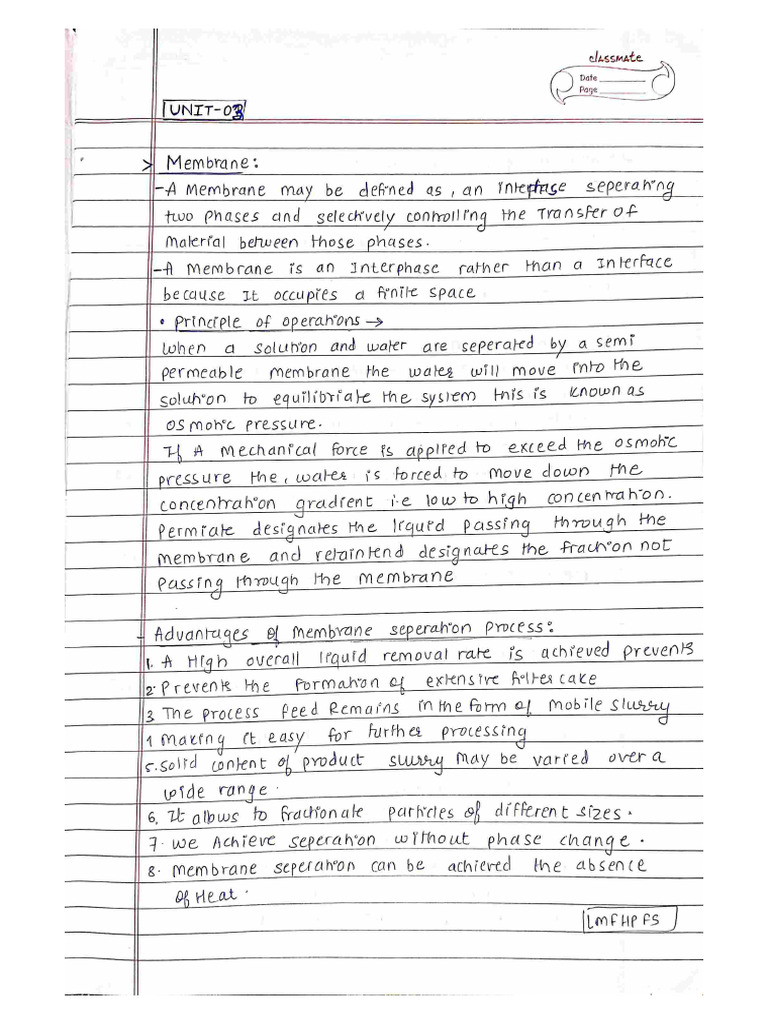 classmate
Date
Page
UNIT-03
> Membrane:
- A Membrane may be defined as, an Interphase seperating
two phases and selectively controlling the Transfer of
Material between those phases.
- A Membrane is an Interphase rather than a Interface
because It occupies a finite space
• Principle of operations →
When a solution and water are seperated by a semi
permeable membrane the water will move into the
solution to equilibriate the system this is known as
osmotic pressure.
If A Mechanical force is applied to exceed the osmotic
pressure the, water is forced to move down the
concentration gradient i.e low to high concentration.
Permiate designates the liquid passing through the
membrane and retaintend designates the fraction not
Passing through the Membrane
- Advantages of Membrane seperation Process:
1. A High overall liquid removal rate is achieved prevents
2. Prevents the Formation of extensive filter cake
3 The process feed Remains in the form of mobile slurry
1 Making it easy for further processing
5. Solid content of product slurry may be varied over a
wide range.
6. It allows to fractionate particles of different sizes.
7. we Achieve seperation without phase change.
8. Membrane seperation can be achieved the absence
of Heat.
LMFHPFS